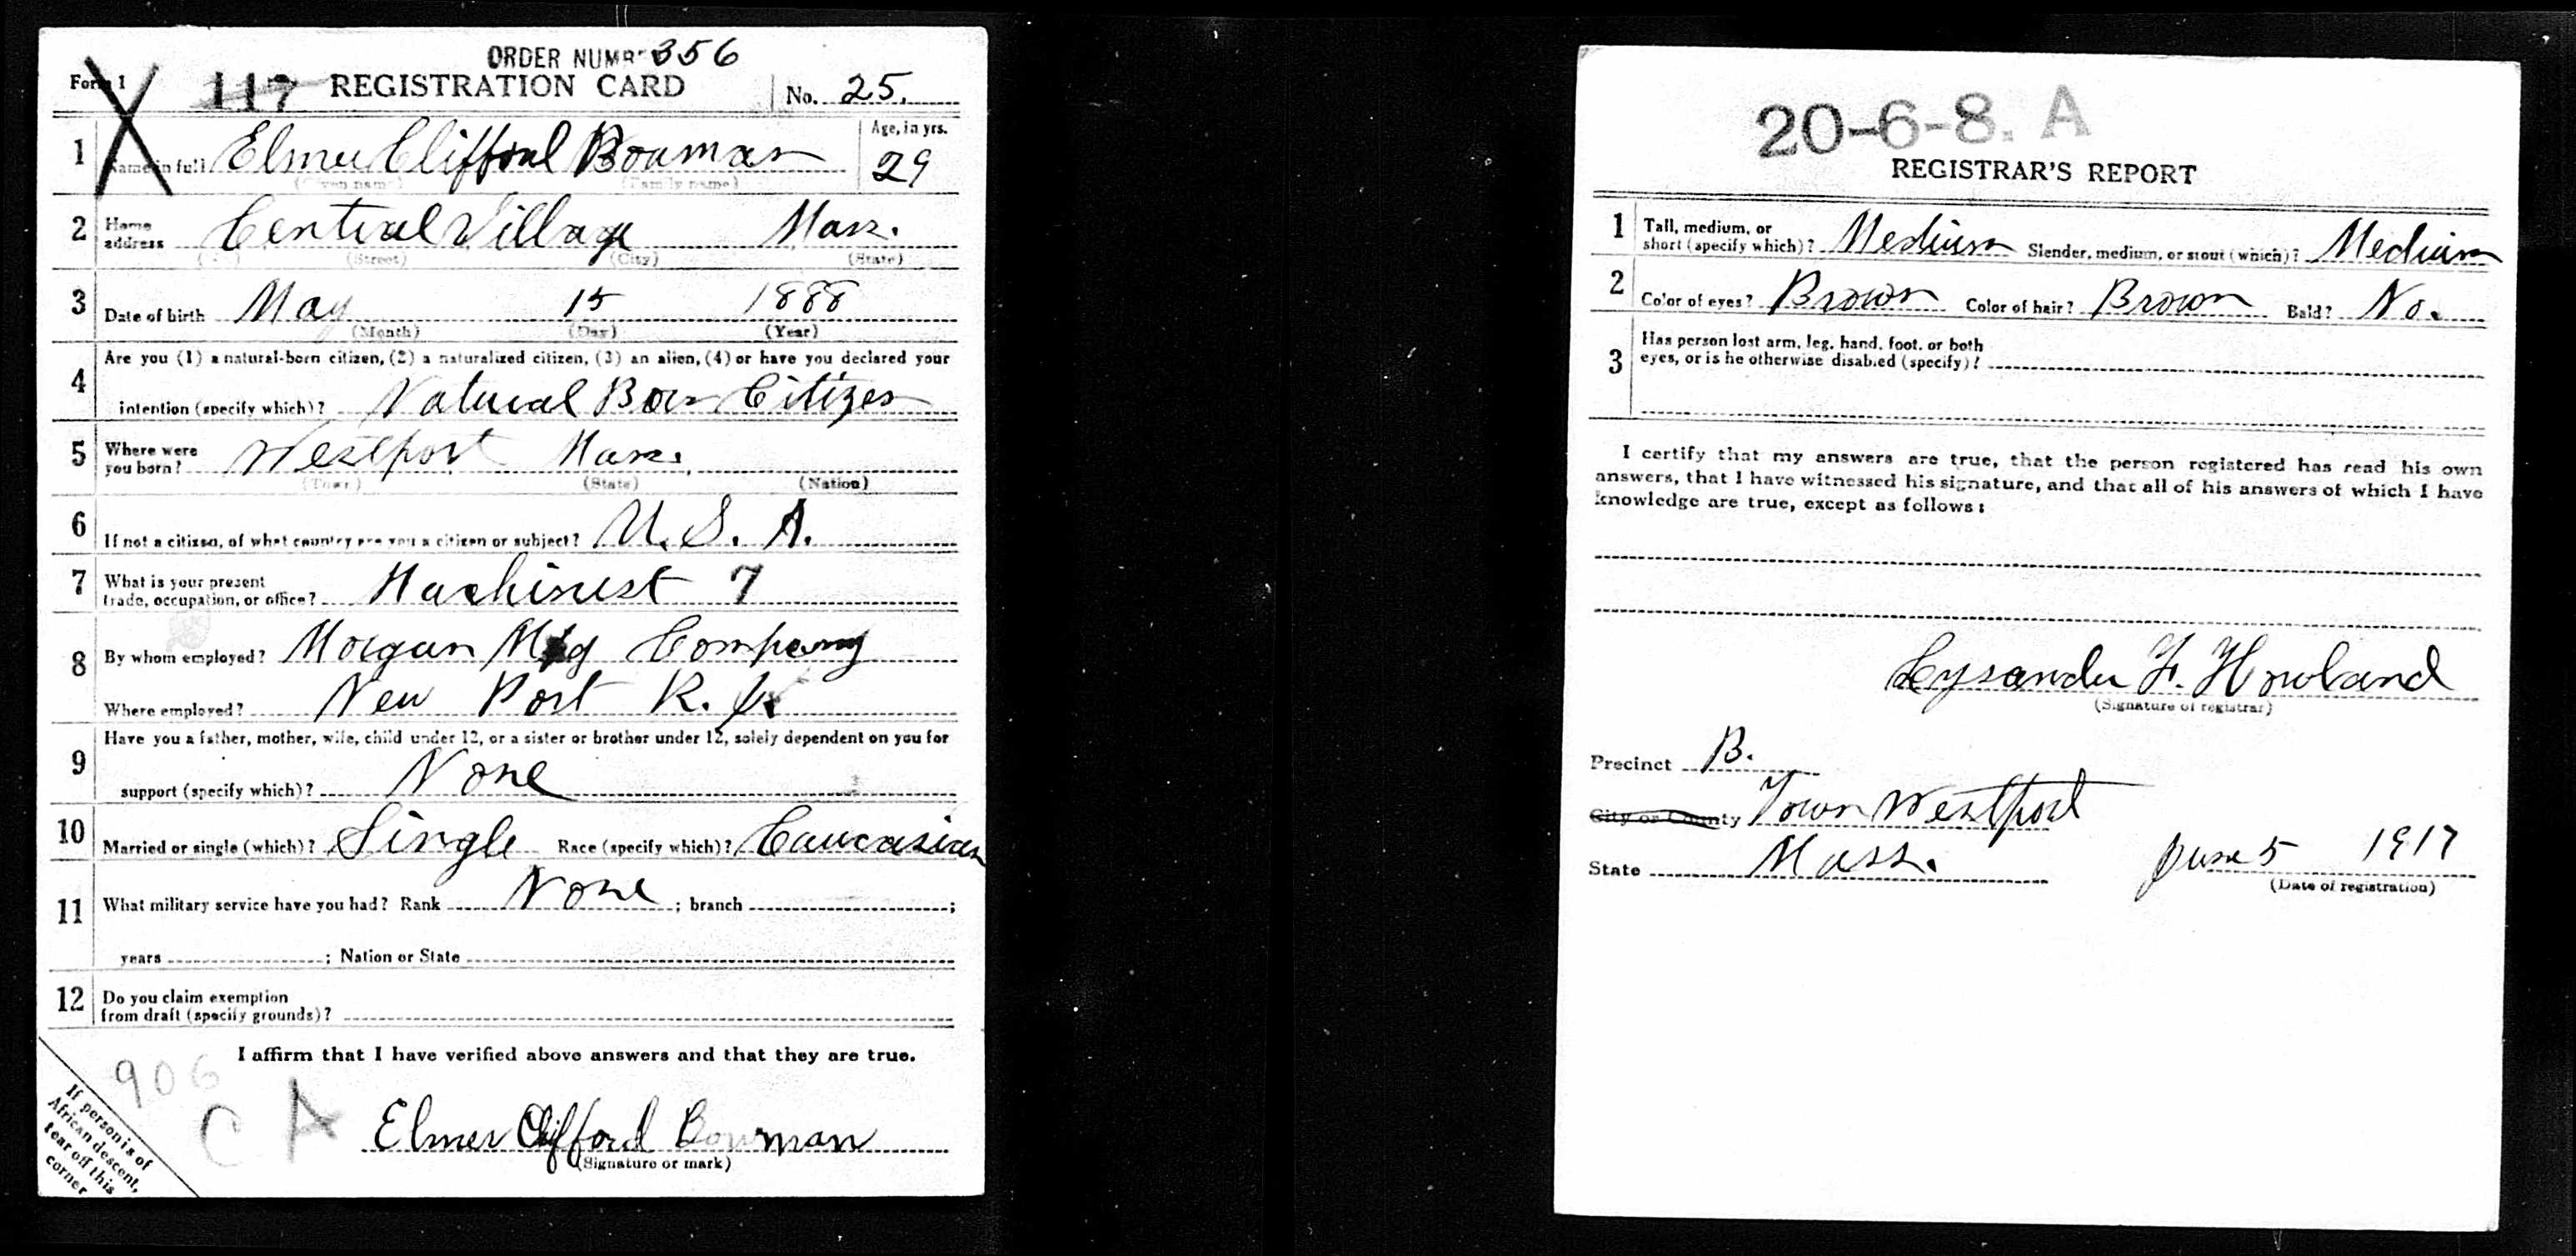 ORDER NUMBE 356
Form 1 117 REGISTRATION CARD No. 25.
1 Name in full Elmer Clifford Bowman Age, in yrs. 29
(Given name) (Family name)
2 Home address Central Village Mass.
(No.) (Street) (City) (State)
3 Date of birth May 15 1888
(Month) (Day) (Year)
4 Are you (1) a natural-born citizen, (2) a naturalized citizen, (3) an alien, (4) or have you declared your
intention (specify which)? Natural Born Citizen
5 Where were
you born? Westport Mass.
(Town) (State) (Nation)
6 If not a citizen, of what country are you a citizen or subject? U. S. A.
7 What is your present
trade, occupation, or office? Machinist 7
8 By whom employed? Morgan Mfg Company
Where employed? New Port R. I.
9 Have you a father, mother, wife, child under 12, or a sister or brother under 12, solely dependent on you for
support (specify which)? None
10 Married or single (which)? Single Race (specify which)? Caucasian
11 What military service have you had? Rank None ; branch ;
years ; Nation or State
12 Do you claim exemption
from draft (specify grounds)?
I affirm that I have verified above answers and that they are true.
906
C A
Elmer Clifford Bowman
(Signature or mark)
If person is of
African descent,
tear off this
corner
20-6-8. A
REGISTRAR'S REPORT
1 Tall, medium, or
short (specify which)? Medium Slender, medium, or stout (which)? Medium
2 Color of eyes? Brown Color of hair? Brown Bald? No.
3 Has person lost arm, leg, hand, foot, or both
eyes, or is he otherwise disabled (specify)?
I certify that my answers are true, that the person registered has read his own
answers, that I have witnessed his signature, and that all of his answers of which I have
knowledge are true, except as follows:
Lysander F. Howland
(Signature of registrar)
Precinct B.
City or County Town Westport
State Mass. June 5 1917
(Date of registration)